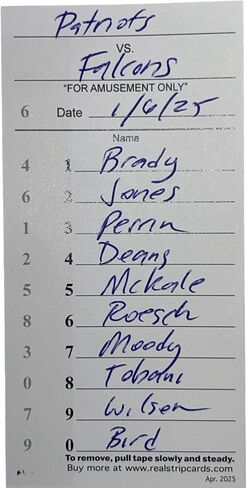 Patriots
VS.
Falcons
"FOR AMUSEMENT ONLY"
6 Date 1/6/25
Name
4 1 Brady
6 2 Jones
1 3 Perrin
2 4 Deans
5 5 McKale
8 6 Roesch
3 7 Moody
0 8 Tobani
7 9 Wilson
9 0 Bird
To remove, pull tape slowly and steady.
Buy more at www.realstripcards.com
Apr. 2025